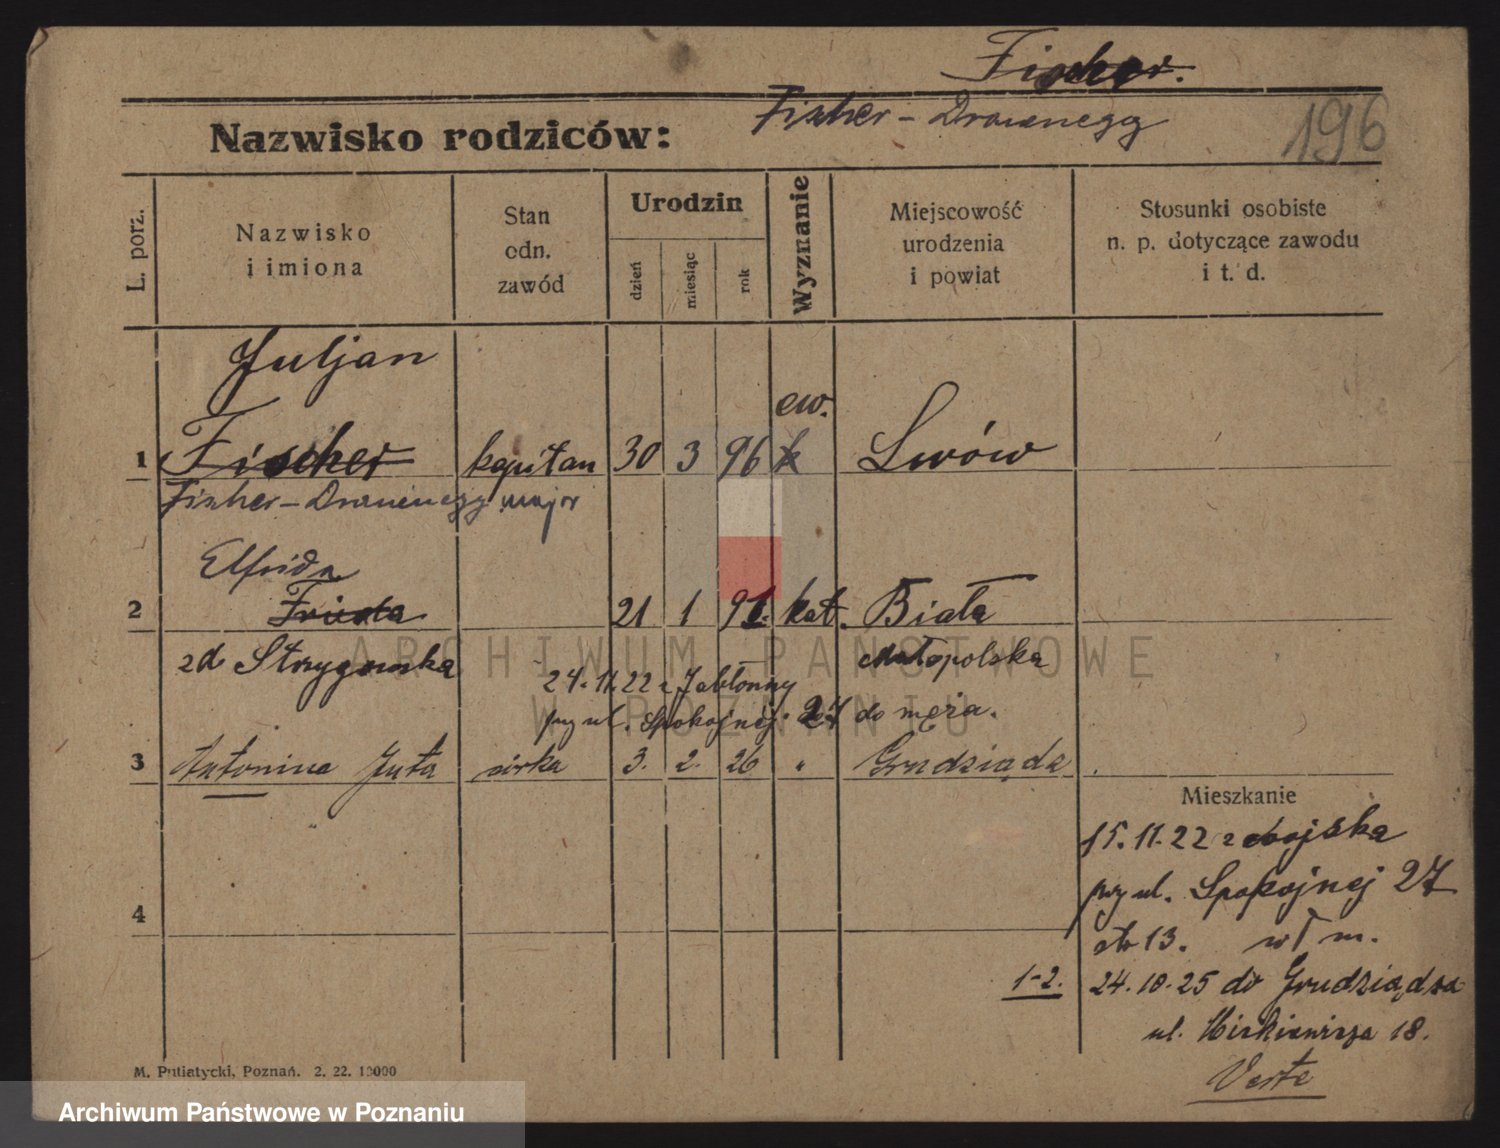 Fischer.
Fischer-Drauenegg
196
Nazwisko rodziców:
L. porz.
Nazwisko
i imiona
Stan
odn.
zawód
Urodzin
dzień
miesiąc
rok
Wyznanie
Miejscowość
urodzenia
i powiat
Stosunki osobiste
n. p. dotyczące zawodu
i t. d.
Juljan
ew.
1 Fischer kapitan 30 3 96 k Lwów
Fischer-Drauenegg major
Elfrida
2 Frieda 21 1 91. kat. Biała
zd. Strzygowska Małopolska
24.11.22 z Jabłonny
przy ul. Spokojnej 27 do męża.
3 Antonina Juta córka 3. 2. 26 " Grudziądz
Mieszkanie
15.11.22 z wojska
przy ul. Spokojnej 27
4
13. wł m.
1-2. 24.10.25 do Grudziądza
ul. Mickiewicza 18.
Verte
M. Putiatycki, Poznań. 2. 22. 10000
ARCHIWUM PAŃSTWOWE
W POZNANIU
Archiwum Państwowe w Poznaniu